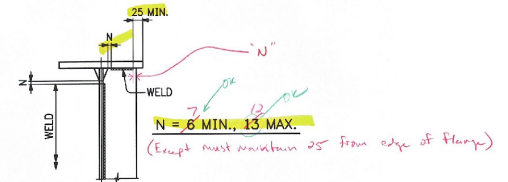 25 MIN.
N
"N"
N
WELD
WELD
OK
OK
7
12
N = 6 MIN., 13 MAX.
(Except must maintain 25 from edge of flange)